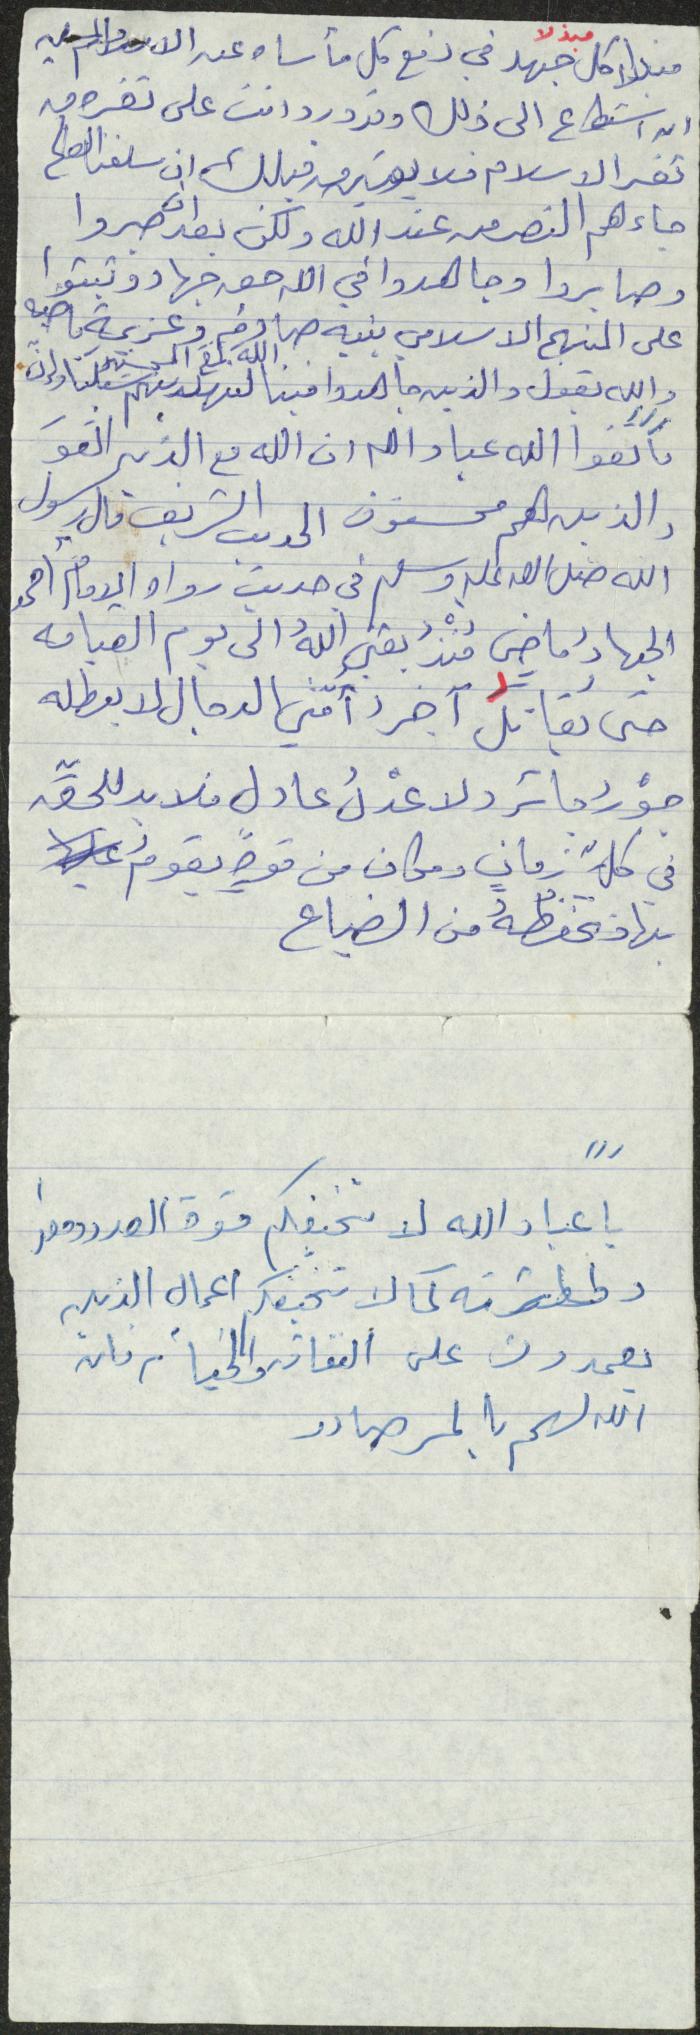 مبذلا
مبذلوا كل جهد في دفع كل مأساه عن الاسلام
ان استطاع الى ذلك وقد ورد انت على ثغره من
ثغر الاسلام فلا يؤتين من قبلك ان سلفنا الصالح
جاءهم النصر من عند الله ولكن بعد ان صبروا
وصابروا وجاهدوا في الله حق جهاده وثبتوا
على المنهج الاسلامي بنيه صادقه وعزيمة ماضيه
والله يقول والذين جاهدوا فينا لنهدينهم سبلنا وإن
الله لمع المحسنين
فأتقوا الله عباد الله ان الله مع الذين اتقو
والذين هم محسنون الحديث الشريف قال رسول
الله صلى الله عليه وسلم في حديث رواه الإمام احمد
الجهاد ماضٍ مُنْذُ بعثني اللهُ الى يوم القيامه
حتى يُقاتلَ آخر أُمّتي الدجال لا يبطله
جوْرُ جائر ولا عدْلُ عادل فلا بد للحقّ
في كلّ زمانٍ ومكان من قوةٍ يقومُ
بها وتحفظهُ من الضياع
يا عباد الله لا تخيفكم قوة العدو
وغطرسته كما لا تخيفكم اعمال الذين
يعمدون على النفاق والخيانه فان
الله لهم بالمرصاد